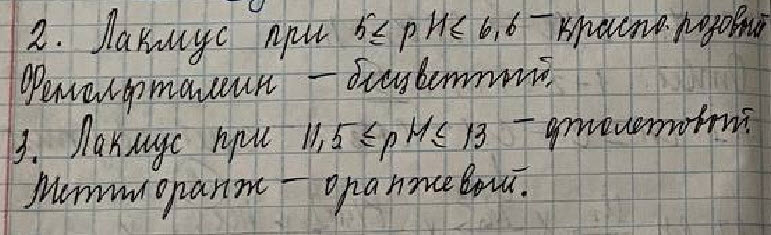 2. Лакмус при 5≤pH≤6,6 - красно розовый
Фенолфталеин - бесцветный.
3. Лакмус при 11,5≤pH≤13 - фиолетовый.
Метилоранж - оранжевый.